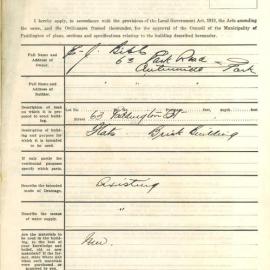 I hereby apply, in accordance with the provisions of the Local Government Act, 1919, the Acts amending
the same, and the Ordinances framed thereunder, for the approval of the Council of the Municipality of
Paddington of plans, sections and specifications relating to the building described hereunder.
Full Name and
Address of
Owner.
Park Road
Park
Full Name and
Address of
Builder.
Description of
land on which it is
proposed to build.
No.
feet, depth
feet
63 Paddington St
Description of
building and purpose
for which it is
intended to be used.
Flats Brick Building
If only partly for
residential purposes
specify which parts.
Describe the intended
mode of Drainage.
Existing
Describe the means
of water supply.
Are the materials to
be used in the build-
ing, to the best of
your knowledge and
belief, old or new
materials? If the for-
mer, state where and
when such materials
were purchased or
New